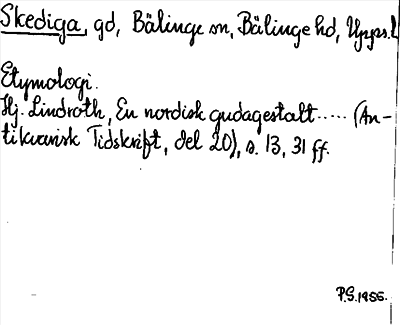 Skediga, gd, Bälinge sn, Bälinge hd, Upps.l
Etymologi.
Hj. Lindroth, En nordisk gudagestalt ..... (An-
tikvarisk Tidskrift, del 20), s. 13, 31 ff.
P.G. 1956.